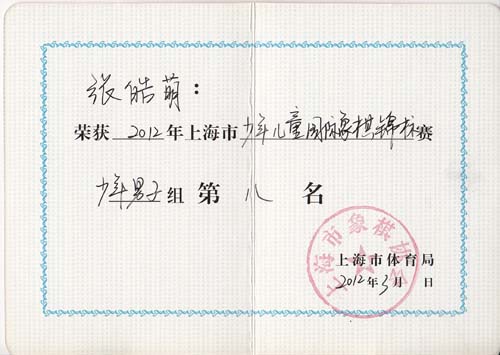 张皓萌：
荣获 2012 年上海市 少年儿童国际象棋锦标 赛
少年男子 组 第 八 名
上海市象棋协会
上海市体育局
2012 年 3 月 日